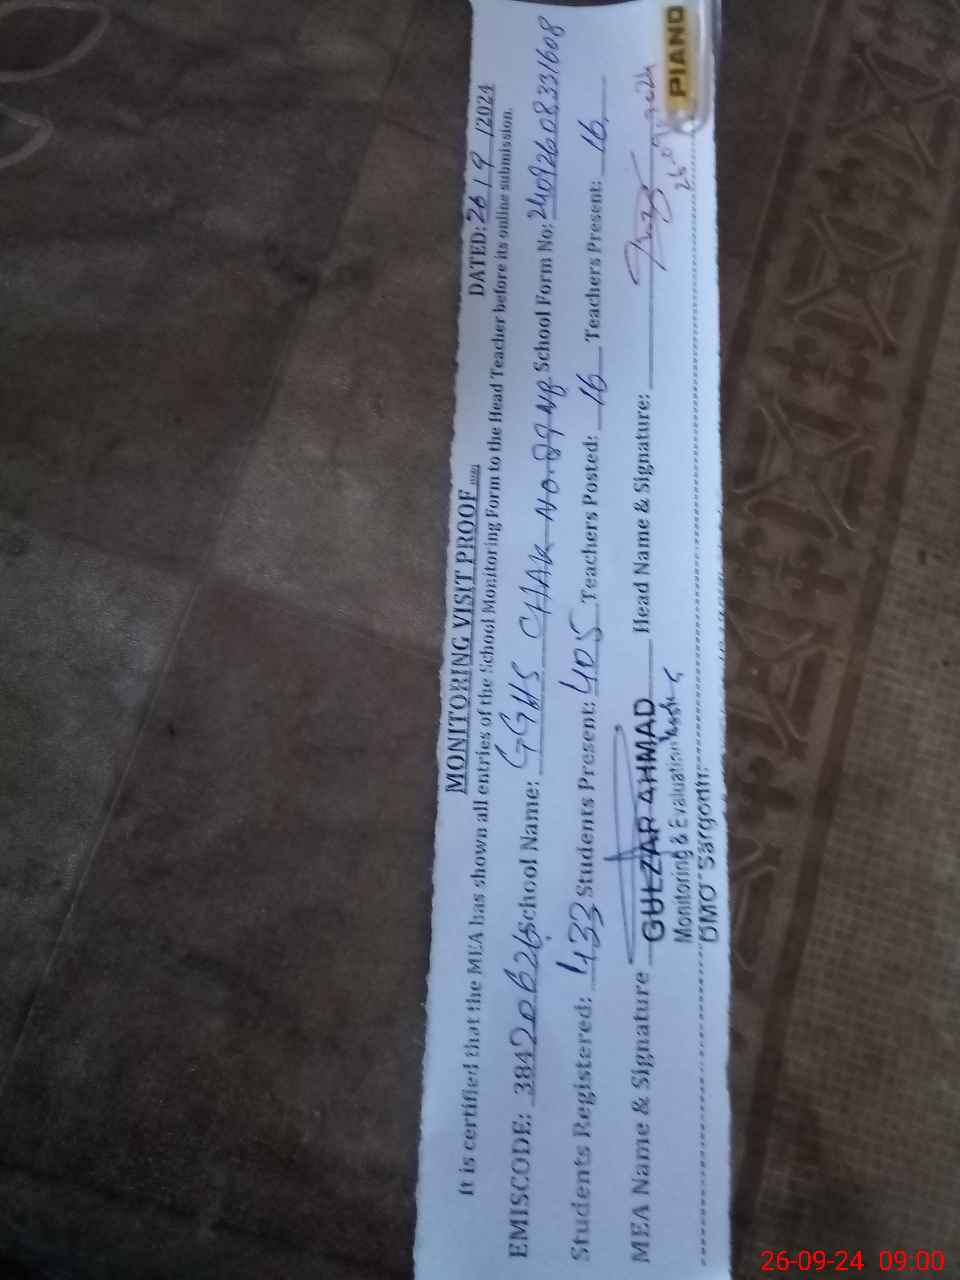 MONITORING VISIT PROOF DATED: 26/9/2024
It is certified that the MEA has shown all entries of the School Monitoring Form to the Head Teacher before its online submission.
EMISCODE: School Name: GGHS CHAK NO. School Form No: 24092608331608
Students Registered: 433 Students Present: 405 Teachers Posted: 16 Teachers Present: 16
MEA Name & Signature GULZAR AHMAD Head Name & Signature:
Monitoring & Evaluation
DMO Sargodh
PIANO
26-09-24 09:00